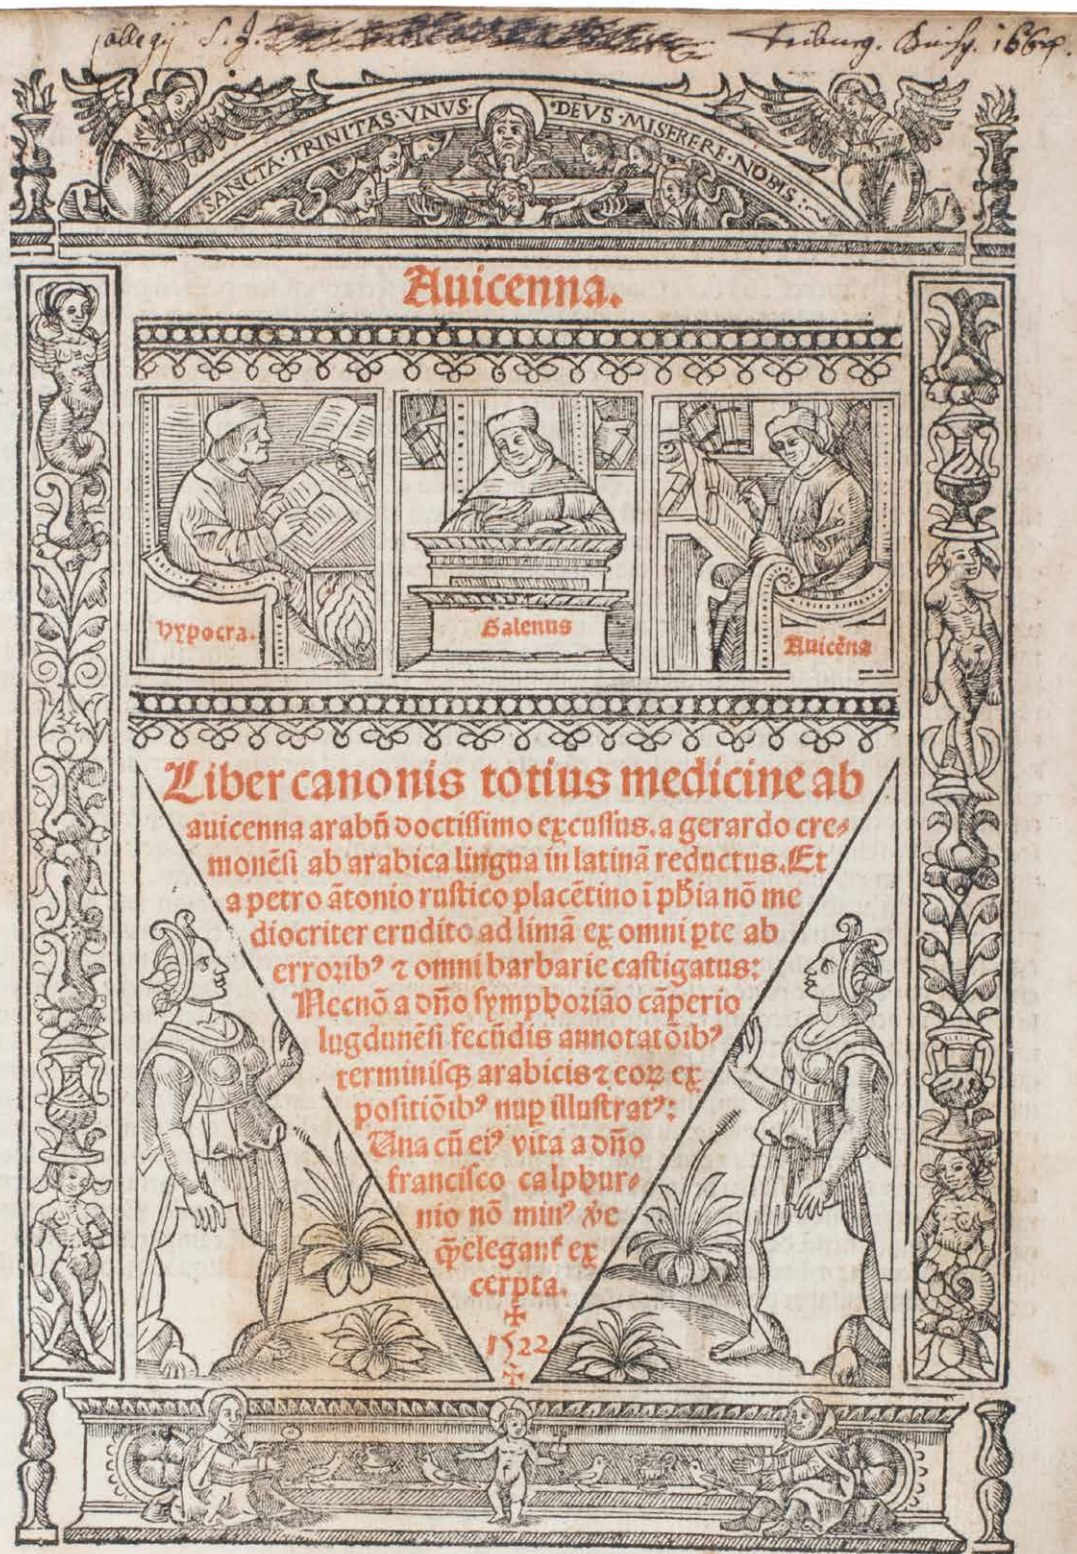 Collegij S. J. Friburg. Brisg. 1664.
SANCTA·TRINITAS·VNVS·DEVS·MISERERE·NOBIS:
Auicenna.
Hypocra.
Galenus
Auicēna
Liber canonis totius medicine ab
auicenna arabū doctissimo excussus. a gerardo cre⸗
monēsi ab arabica lingua in latinā reductus. Et
a petro ātonio rustico placētino ī ph̄ia nō me
diocriter erudito ad limā ex omni ꝑte ab
erroribꝰ ⁊ omni barbarie castigatus:
Necnō a dn̄o symphoriāo cāperio
lugdunēsi fecūdis annotatōibꝰ
terminisqꝫ arabicis ⁊ eoꝝ ex
positiōibꝰ nuꝑ illustratꝰ:
Una cū eiꝰ vita a dn̄o
francisco calphur⸗
nio nō minꝰ v̄e
q̄ꝫ elegant ex
cerpta.
1522